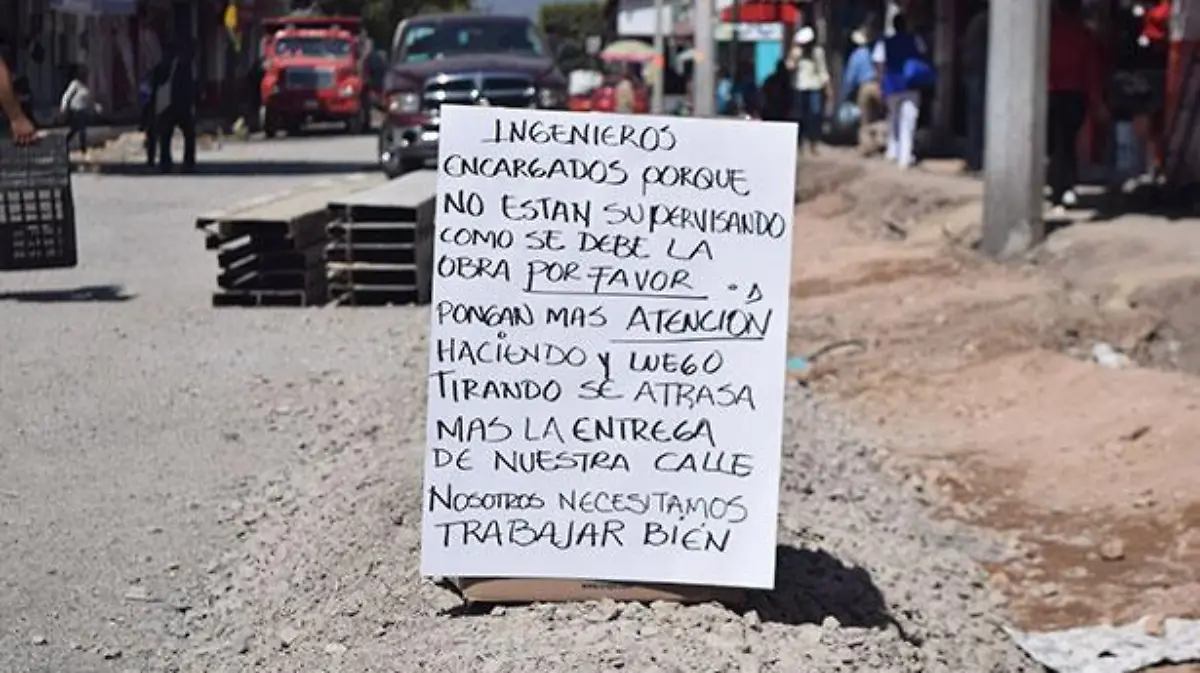 INGENIEROS
ENCARGADOS PORQUE
NO ESTAN SUPERVISANDO
COMO SE DEBE LA
OBRA POR FAVOR
PONGAN MAS ATENCIÓN
HACIENDO Y LUEGO
TIRANDO SE ATRASA
MAS LA ENTREGA
DE NUESTRA CALLE
NOSOTROS NECESITAMOS
TRABAJAR BIÉN